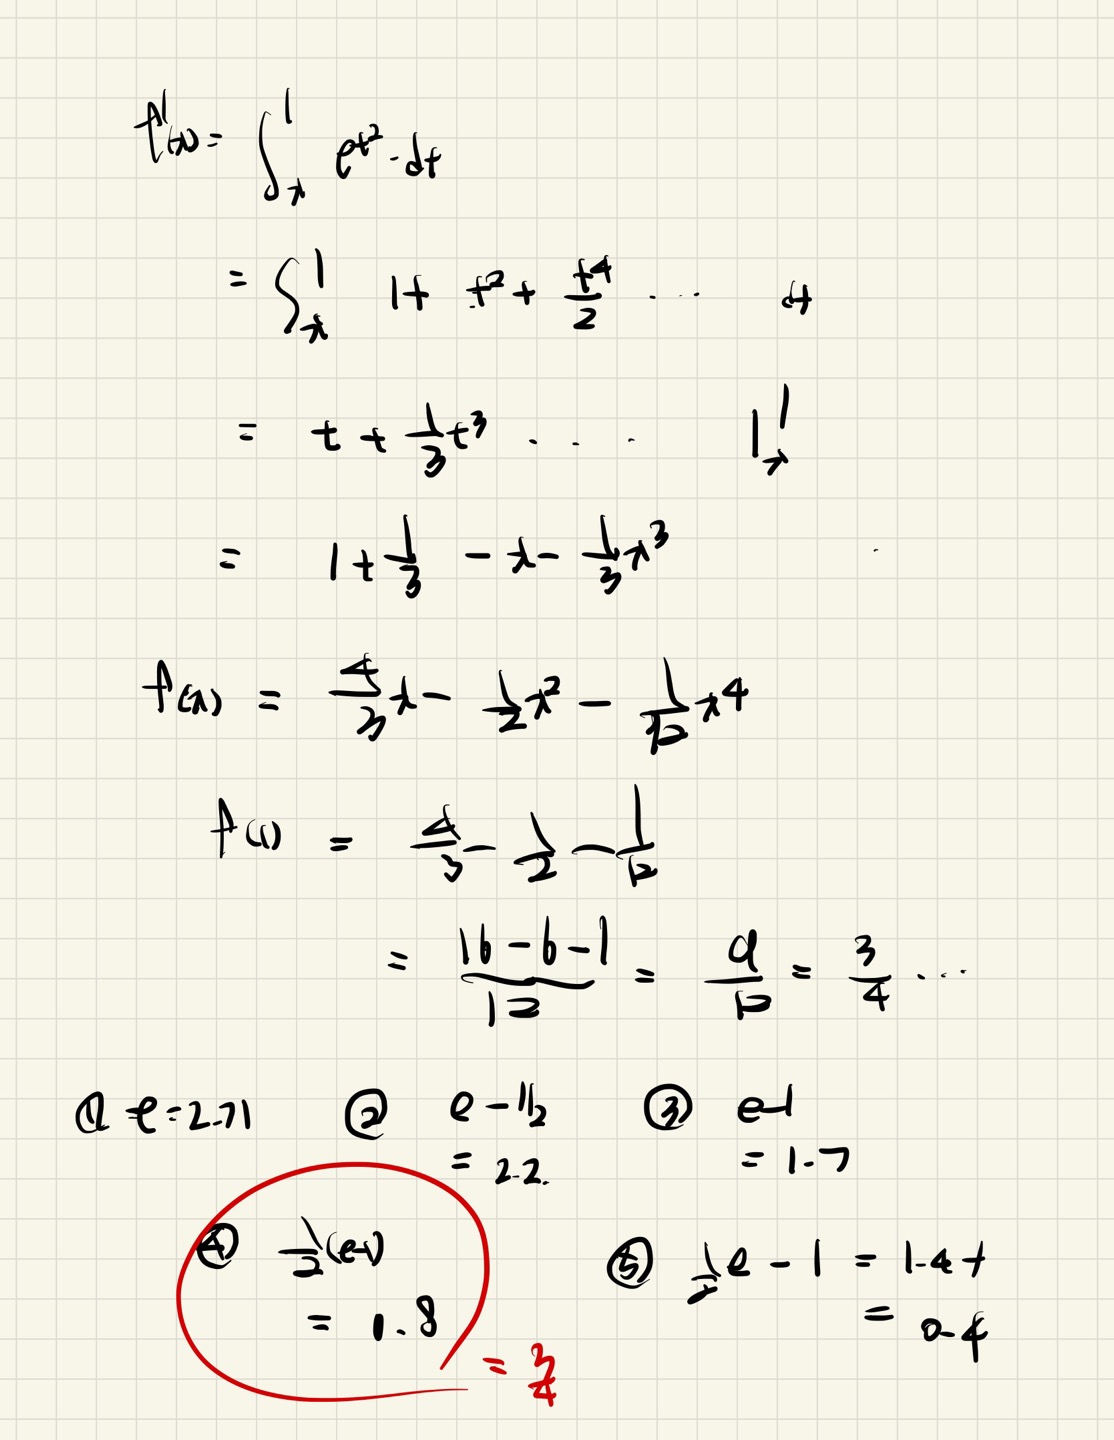 f'(x) = ∫_x^1 e^{t^2} · dt
= ∫_x^1 1 + t^2 + t^4/2 ... dt
= t + 1/3 t^3 ... |_x^1
= 1 + 1/3 - x - 1/3 x^3
f(x) = 4/3 x - 1/2 x^2 - 1/12 x^4
f(1) = 4/3 - 1/2 - 1/12
= (16 - 6 - 1)/12 = 9/12 = 3/4 ...
① e = 2.71 ② e - 1/2 ③ e-1
= 2.2. = 1.7
④ 1/2 (e-1) ⑤ 1/2 e - 1 = 1.4 - 1
= 0.8 = 0.4
= 3/4